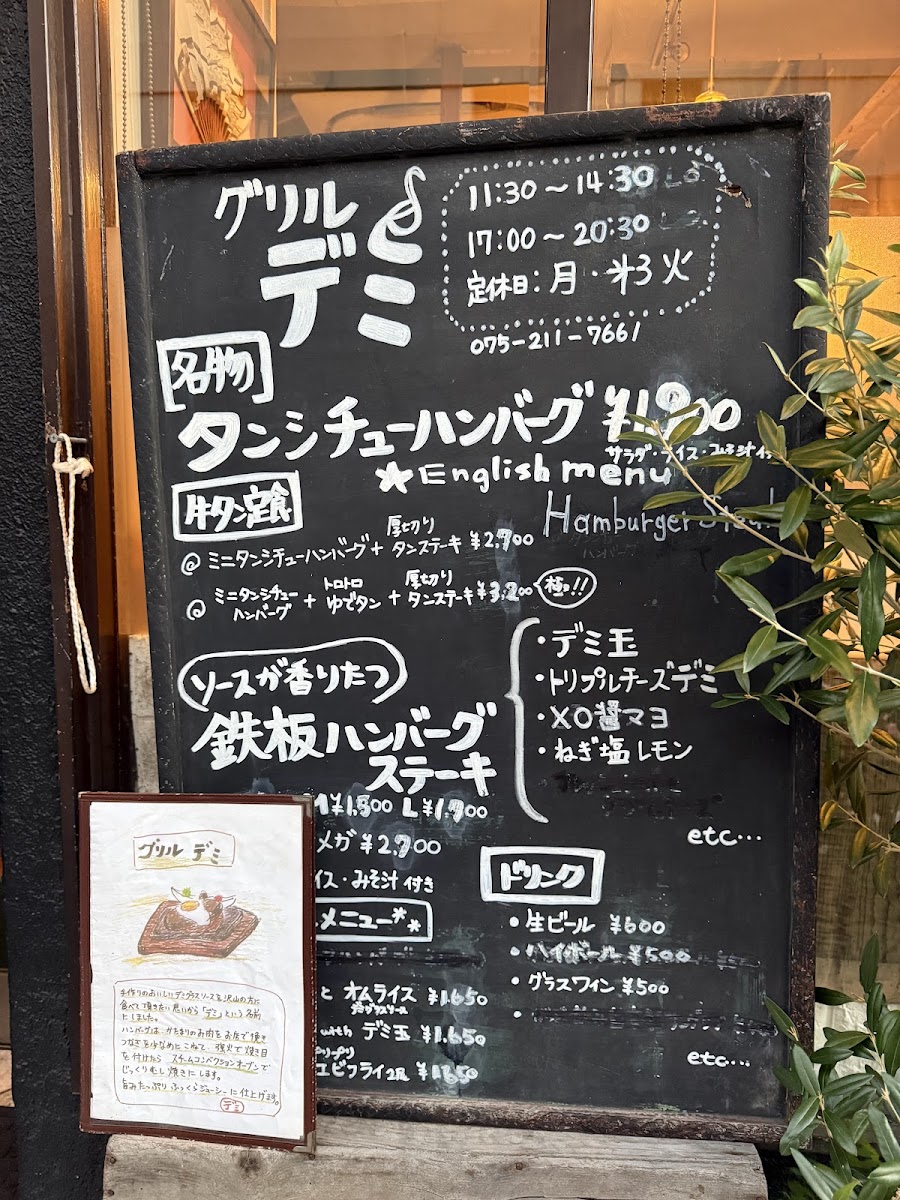 グリル
デミ
11:30～14:30 Lo
17:00～20:30 Lo
定休日：月・火
075-211-7661
名物
タンシチューハンバーグ ¥1,900
サラダ・ライス・みそ汁付
★English menu
牛タン定食
Hamburger Steak
ハンバーグ
@ ミニタンシチューハンバーグ + 厚切りタンステーキ ¥2,700
@ ミニタンシチューハンバーグ + トロトロゆでタン + 厚切りタンステーキ ¥3,200 極!!
ソースが香りたつ
鉄板ハンバーグ
ステーキ
・デミ玉
・トリプルチーズデミ
・XO醤マヨ
・ねぎ塩レモン
etc…
¥1,300 L¥1,700
メガ ¥2,700
イス・みそ汁 付き
メニュー**
ドリンク
・生ビール ¥600
・ハイボール ¥500
・グラスワイン ¥500
etc…
と オムライス ¥1,650
デミグラスソース
with デミ玉 ¥1,650
プリプリ
エビフライ2尾 ¥1,650
グリル デミ
手作りのおいしいデミグラスソースを沢山の方に
食べて頂きたい思いから「デミ」という名前
にしました。
ハンバーグは、かたまりのお肉をお店で挽き
つなぎを少なめにこねて、強火で焼き目
を付けたら スチームコンベクションオーブンで
じっくりむし焼きにします。
旨みたっぷり ふっくらジューシーに仕上げます。
デミ